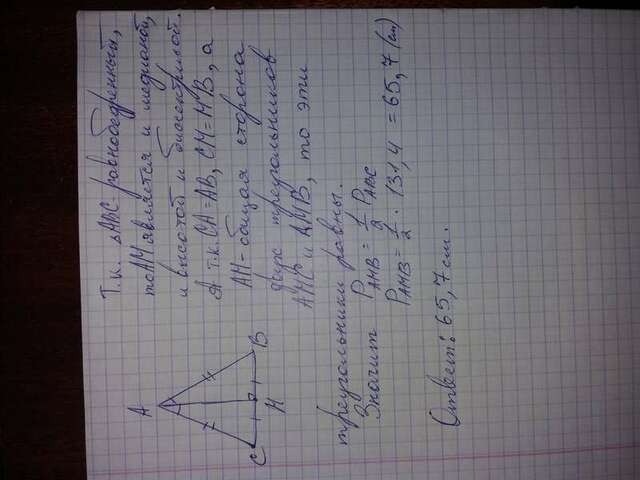 Т.к. ∆ABC- равнобедренный,
то AM является и медианой,
и высотой и биссектрисой.
А т.к. CA=AB, CM=MB, а
AM- общая сторона
двух треугольников
AMC и AMB, то эти
треугольники равны.
Значит P_AMB = 1/2 P_ABC
P_AMB = 1/2 · 131,4 = 65,7 (см)
Ответ: 65,7 см.
A
C
M
B